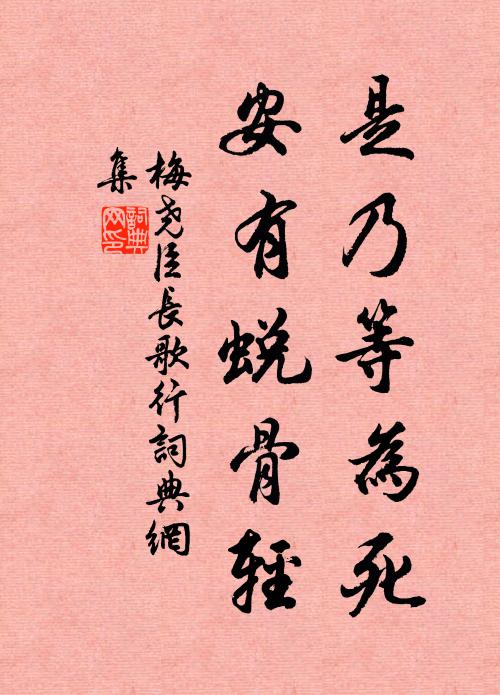 是乃等為死
安有蜕骨輕
梅尧臣長歌行詞典網
集
詞典
网印